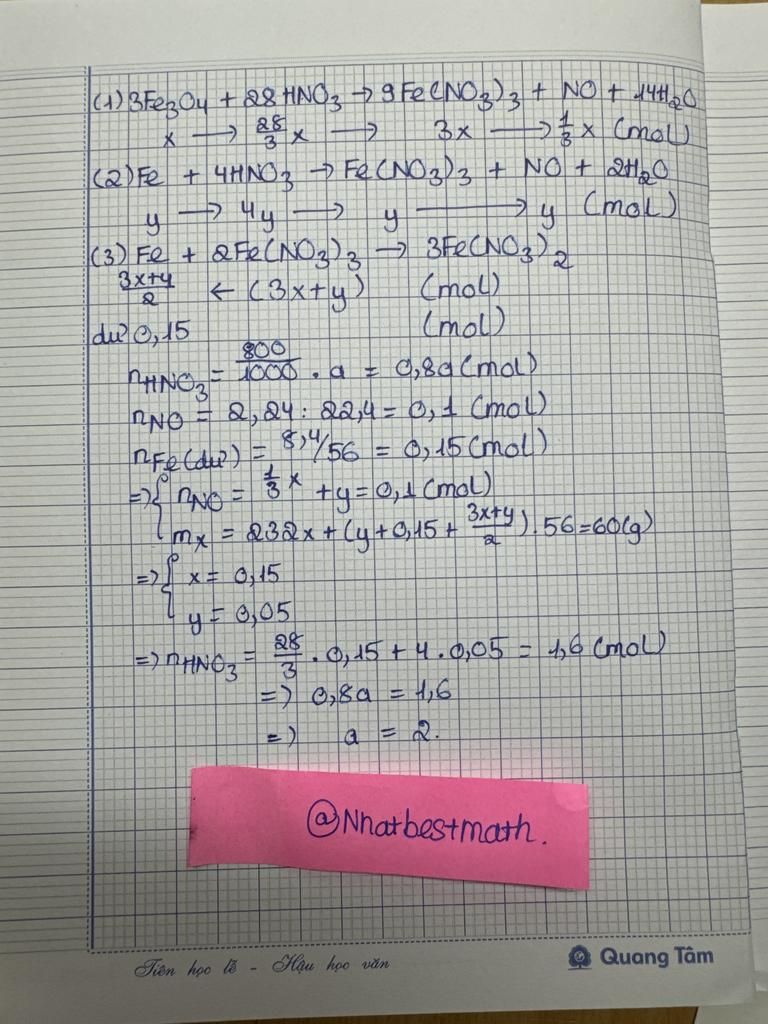 (1) 3Fe₃O₄ + 28HNO₃ → 9Fe(NO₃)₃ + NO + 14H₂O
x → 28/3 x → 3x → 1/3 x (mol)
(2) Fe + 4HNO₃ → Fe(NO₃)₃ + NO + 2H₂O
y → 4y → y → y (mol)
(3) Fe + 2Fe(NO₃)₃ → 3Fe(NO₃)₂
(3x+y)/2 ← (3x+y) (mol)
dư 0,15 (mol)
nHNO₃ = 800/1000 . a = 0,8a (mol)
nNO = 2,24 : 22,4 = 0,1 (mol)
nFe(dư) = 8,4/56 = 0,15 (mol)
=> { nNO = 1/3 x + y = 0,1 (mol)
mx = 232x + (y + 0,15 + (3x+y)/2) . 56 = 60(g)
=> { x = 0,15
y = 0,05
=> nHNO₃ = 28/3 . 0,15 + 4 . 0,05 = 1,6 (mol)
=> 0,8a = 1,6
=> a = 2.
@Nhatbestmath.
Tiên học lễ - Hậu học văn
Quang Tâm